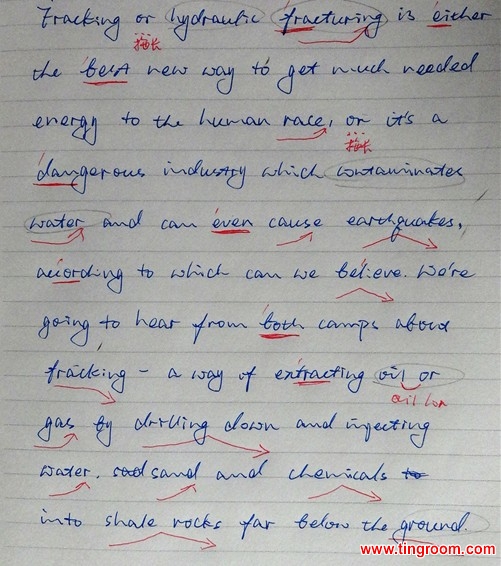 Fracking or hydraulic fracturing is either
拖长
the best new way to get much needed
energy to the human race, or it's a
拖长
dangerous industry which contaminates
water and can even cause earthquakes,
according to which can we believe. We're
going to hear from both camps about
fracking - a way of extracting oil or
gas by drilling down and injecting
water. sand and chemicals
into shale rocks far below the ground.
www.tingroom.com